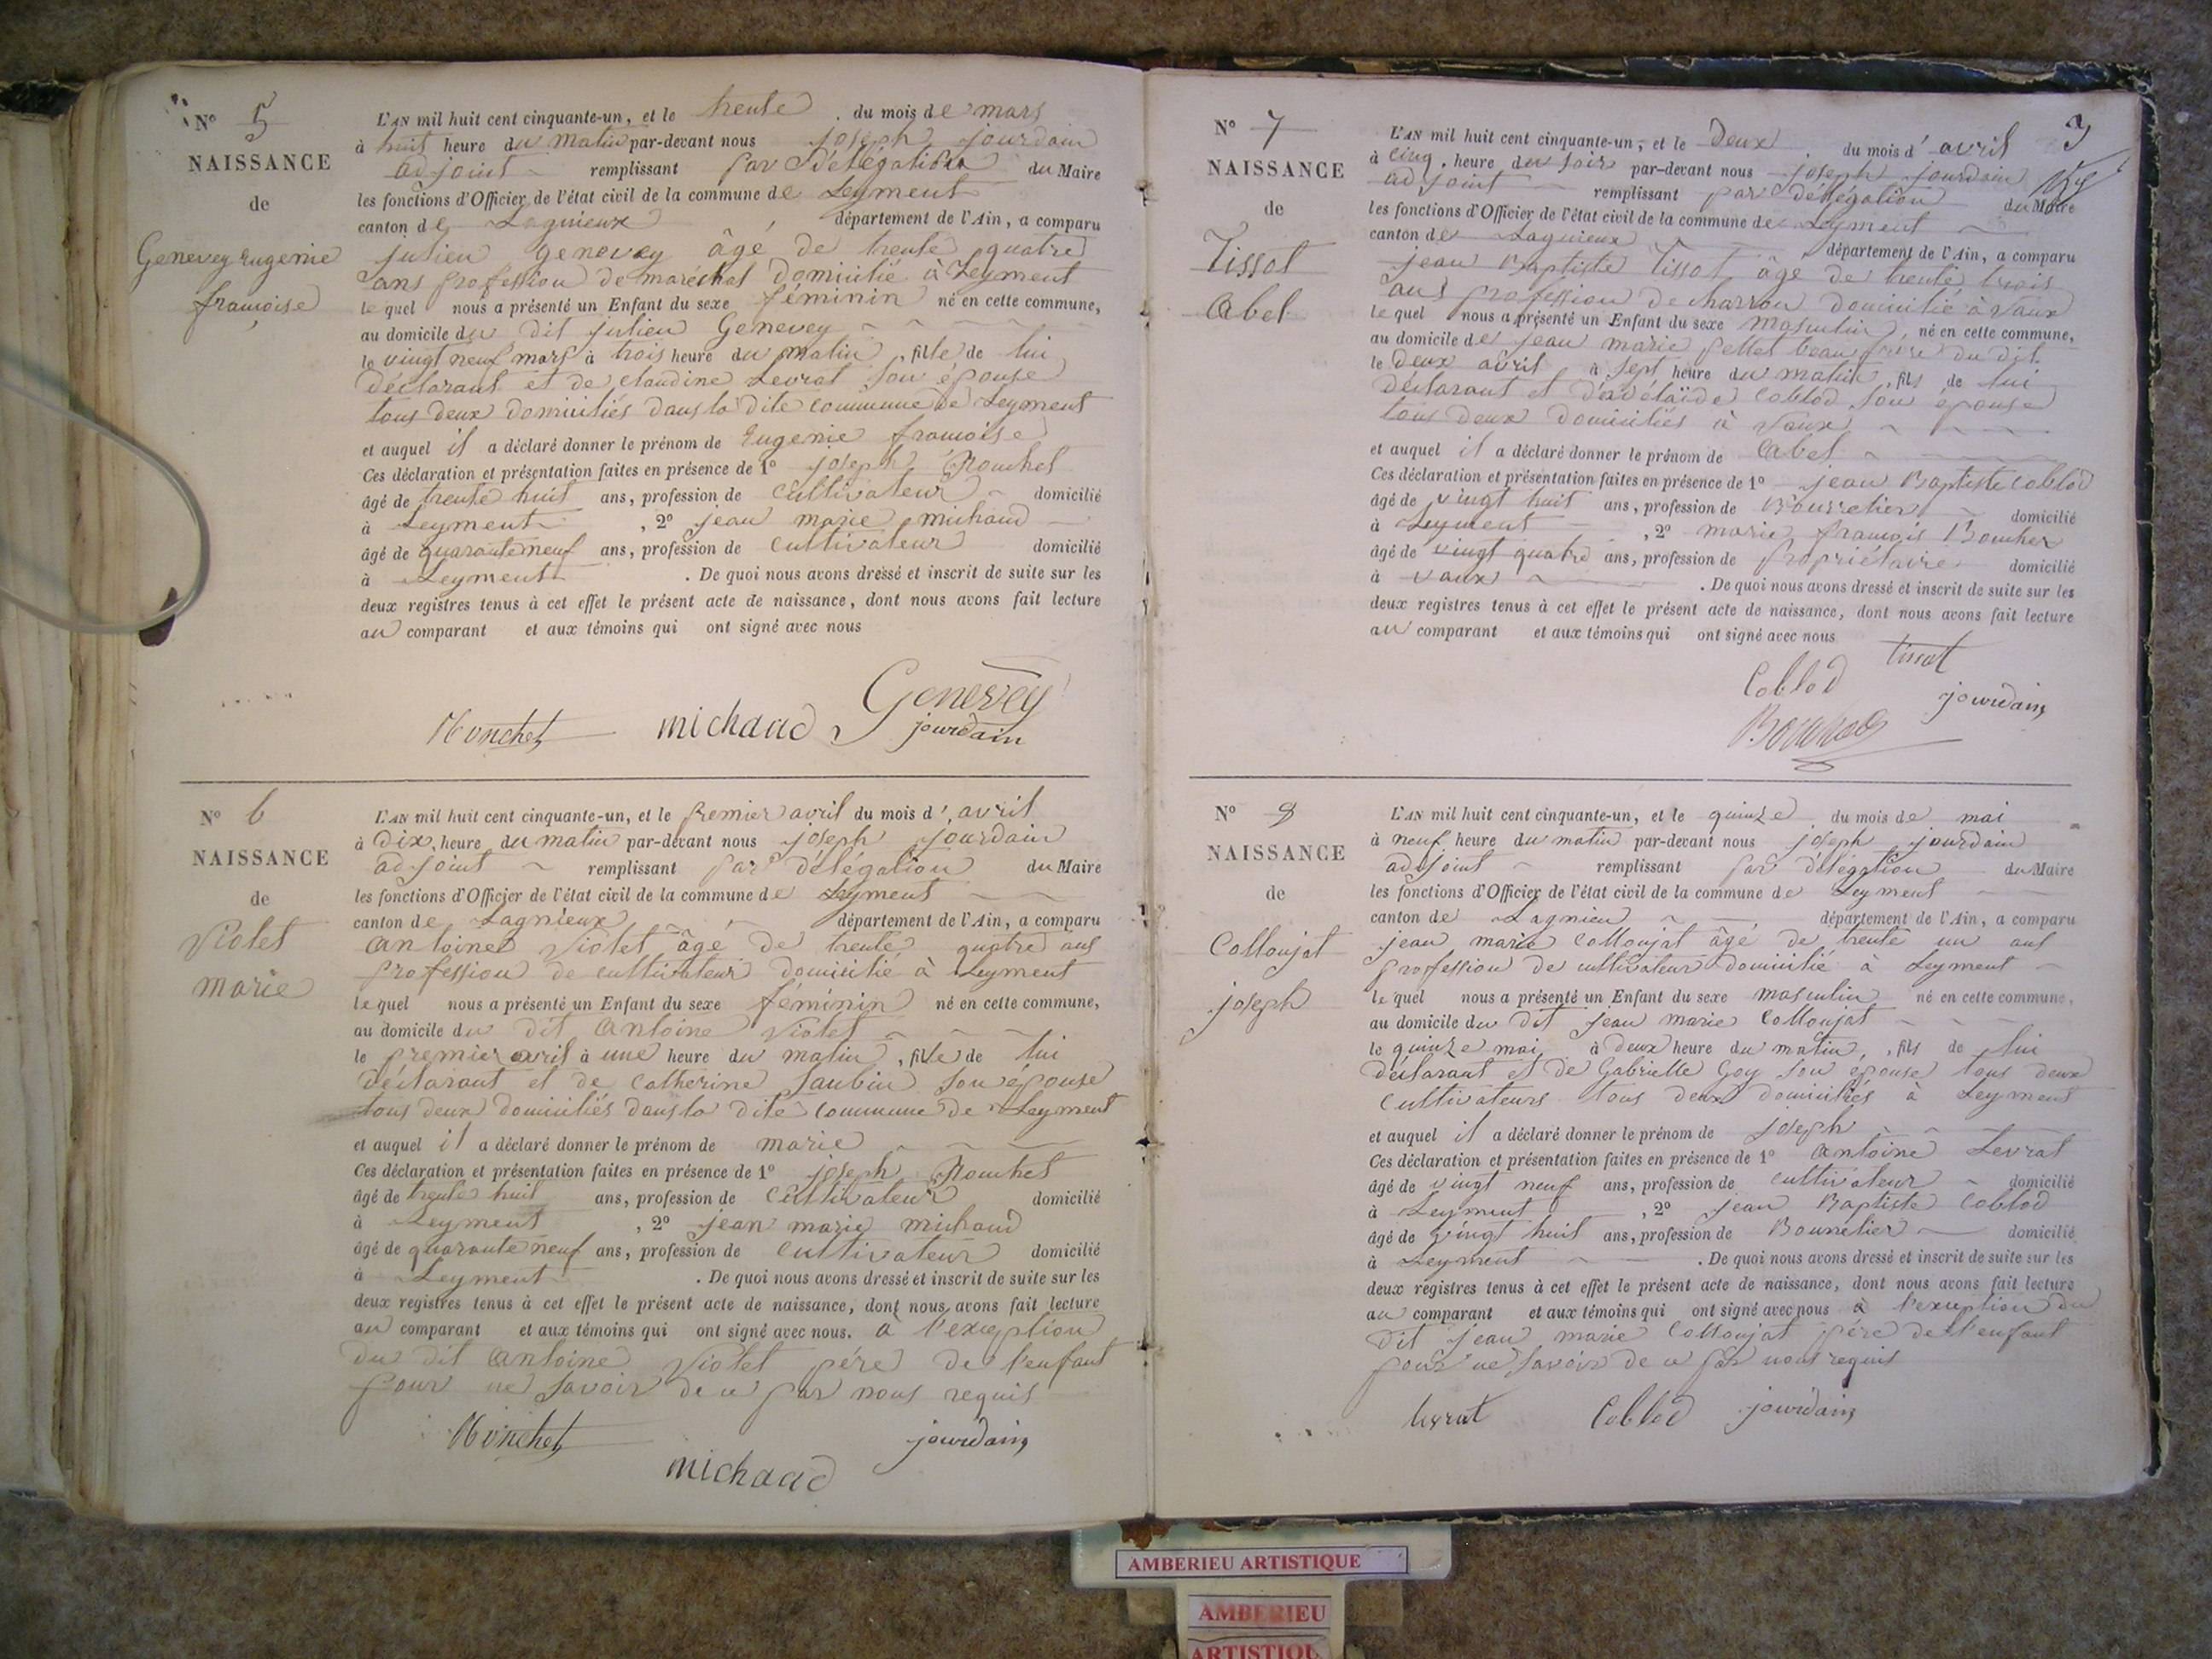 N° 5
NAISSANCE
de
Genevey Eugenie
françoise
L'AN mil huit cent cinquante-un, et le trente du mois de mars
à huit heure du matin par-devant nous joseph jourdain
adjoint remplissant par délégation du Maire
les fonctions d'Officier de l'état civil de la commune de Leyment
canton de Lagnieux, département de l'Ain, a comparu
julien Genevey âgé de trente quatre
ans profession de maréchal domicilié à Leyment
le quel nous a présenté un Enfant du sexe féminin né en cette commune,
au domicile du dit julien Genevey
le vingt neuf mars à trois heure du matin, fille de lui
déclarant et de claudine Levrat son épouse
tous deux domiciliés dans la dite commune de Leyment
et auquel il a déclaré donner le prénom de Eugenie françoise
Ces déclaration et présentation faites en présence de 1° joseph
âgé de trente huit ans, profession de cultivateur domicilié
à Leyment, 2° jean marie michaud
âgé de quarante neuf ans, profession de cultivateur domicilié
à Leyment. De quoi nous avons dressé et inscrit de suite sur les
deux registres tenus à cet effet le présent acte de naissance, dont nous avons fait lecture
au comparant et aux témoins qui ont signé avec nous
Genevey
michaud jourdain
N° 6
NAISSANCE
de
Violet
marie
L'AN mil huit cent cinquante-un, et le premier avril du mois d'avril
à dix heure du matin par-devant nous joseph jourdain
adjoint remplissant par délégation du Maire
les fonctions d'Officier de l'état civil de la commune de Leyment
canton de Lagnieux, département de l'Ain, a comparu
antoine Violet âgé de trente quatre ans
profession de cultivateur domicilié à Leyment
le quel nous a présenté un Enfant du sexe féminin né en cette commune,
au domicile du dit antoine Violet
le premier avril à une heure du matin, fille de lui
déclarant et de Catherine Saubin son épouse
tous deux domiciliés dans la dite commune de Leyment
et auquel il a déclaré donner le prénom de marie
Ces déclaration et présentation faites en présence de 1° joseph
âgé de trente huit ans, profession de cultivateur domicilié
à Leyment, 2° jean marie michaud
âgé de quarante neuf ans, profession de cultivateur domicilié
à Leyment. De quoi nous avons dressé et inscrit de suite sur les
deux registres tenus à cet effet le présent acte de naissance, dont nous avons fait lecture
au comparant et aux témoins qui ont signé avec nous. à l'exception
du dit antoine Violet père de l'enfant
pour ne savoir de ce par nous requis
jourdain
michaud
3
N° 7
NAISSANCE
de
Tissot
abel
L'AN mil huit cent cinquante-un, et le Deux du mois d'avril
à cinq heure du soir par-devant nous joseph jourdain
adjoint remplissant par délégation du Maire
les fonctions d'Officier de l'état civil de la commune de Leyment
canton de Lagnieux département de l'Ain, a comparu
jean Baptiste Tissot âgé de trente trois
ans profession de charron domicilié à Vaux
le quel nous a présenté un Enfant du sexe masculin, né en cette commune,
au domicile de jean marie pellet beau frère du dit
le deux avril à sept heure du matin, fils de lui
déclarant et d'adélaïde Coblod son épouse
tous deux domiciliés à Vaux
et auquel il a déclaré donner le prénom de abel
Ces déclaration et présentation faites en présence de 1° jean Baptiste Coblod
âgé de vingt huit ans, profession de Bourrelier domicilié
à Leyment, 2° marie françois
âgé de vingt quatre ans, profession de propriétaire domicilié
à Vaux. De quoi nous avons dressé et inscrit de suite sur les
deux registres tenus à cet effet le présent acte de naissance, dont nous avons fait lecture
au comparant et aux témoins qui ont signé avec nous
tissot
Coblod
jourdain
N° 8
NAISSANCE
de
Collonjat
joseph
L'AN mil huit cent cinquante-un, et le quinze du mois de mai
à neuf heure du matin par-devant nous joseph jourdain
adjoint remplissant par délégation du Maire
les fonctions d'Officier de l'état civil de la commune de Leyment
canton de Lagnieu département de l'Ain, a comparu
jean marie Collonjat âgé de trente un ans
profession de cultivateur domicilié à Leyment
le quel nous a présenté un Enfant du sexe masculin né en cette commune,
au domicile du dit jean marie Collonjat
le quinze mai à deux heure du matin, fils de lui
déclarant et de Gabrielle Goy son épouse tous deux
cultivateurs tous deux domiciliés à Leyment
et auquel il a déclaré donner le prénom de joseph
Ces déclaration et présentation faites en présence de 1° antoine Levrat
âgé de vingt neuf ans, profession de cultivateur domicilié
à Leyment, 2° jean Baptiste Coblod
âgé de vingt huit ans, profession de Bourrelier domicilié
à Leyment. De quoi nous avons dressé et inscrit de suite sur les
deux registres tenus à cet effet le présent acte de naissance, dont nous avons fait lecture
au comparant et aux témoins qui ont signé avec nous à l'exception du
dit jean marie Collonjat père de l'enfant
pour ne savoir de ce par nous requis
levrat Coblod jourdain
AMBERIEU ARTISTIQUE
AMBERIEU
ARTISTIQUE